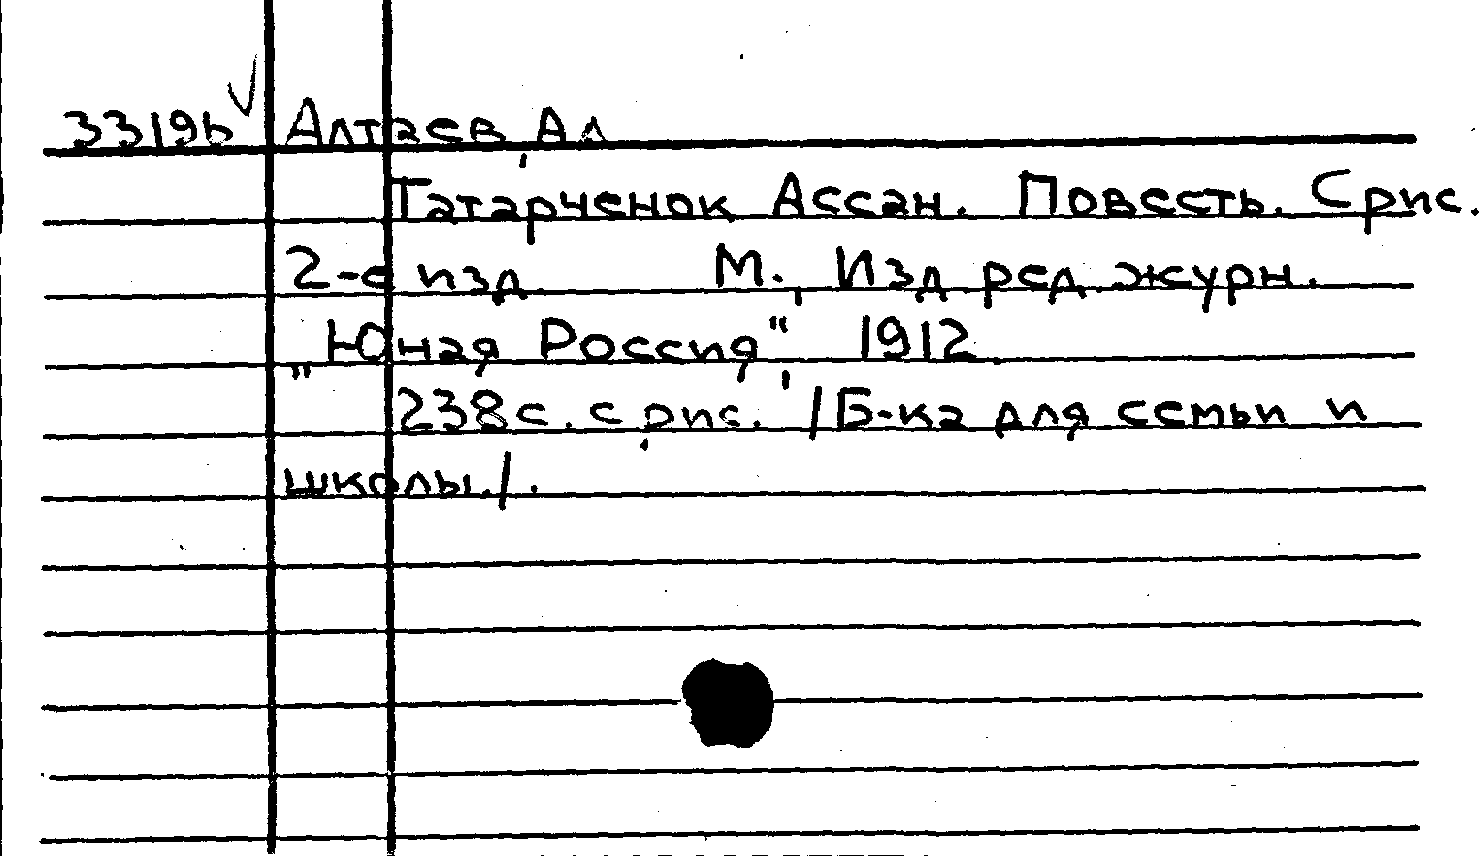 3319ь Алтаев, Ал
Татарченок Ассан. Повесть. С рис.
2-е изд. М., Изд. ред. журн.
„Юная Россия", 1912.
238 с. с рис. /Б-ка для семьи и
школы./.